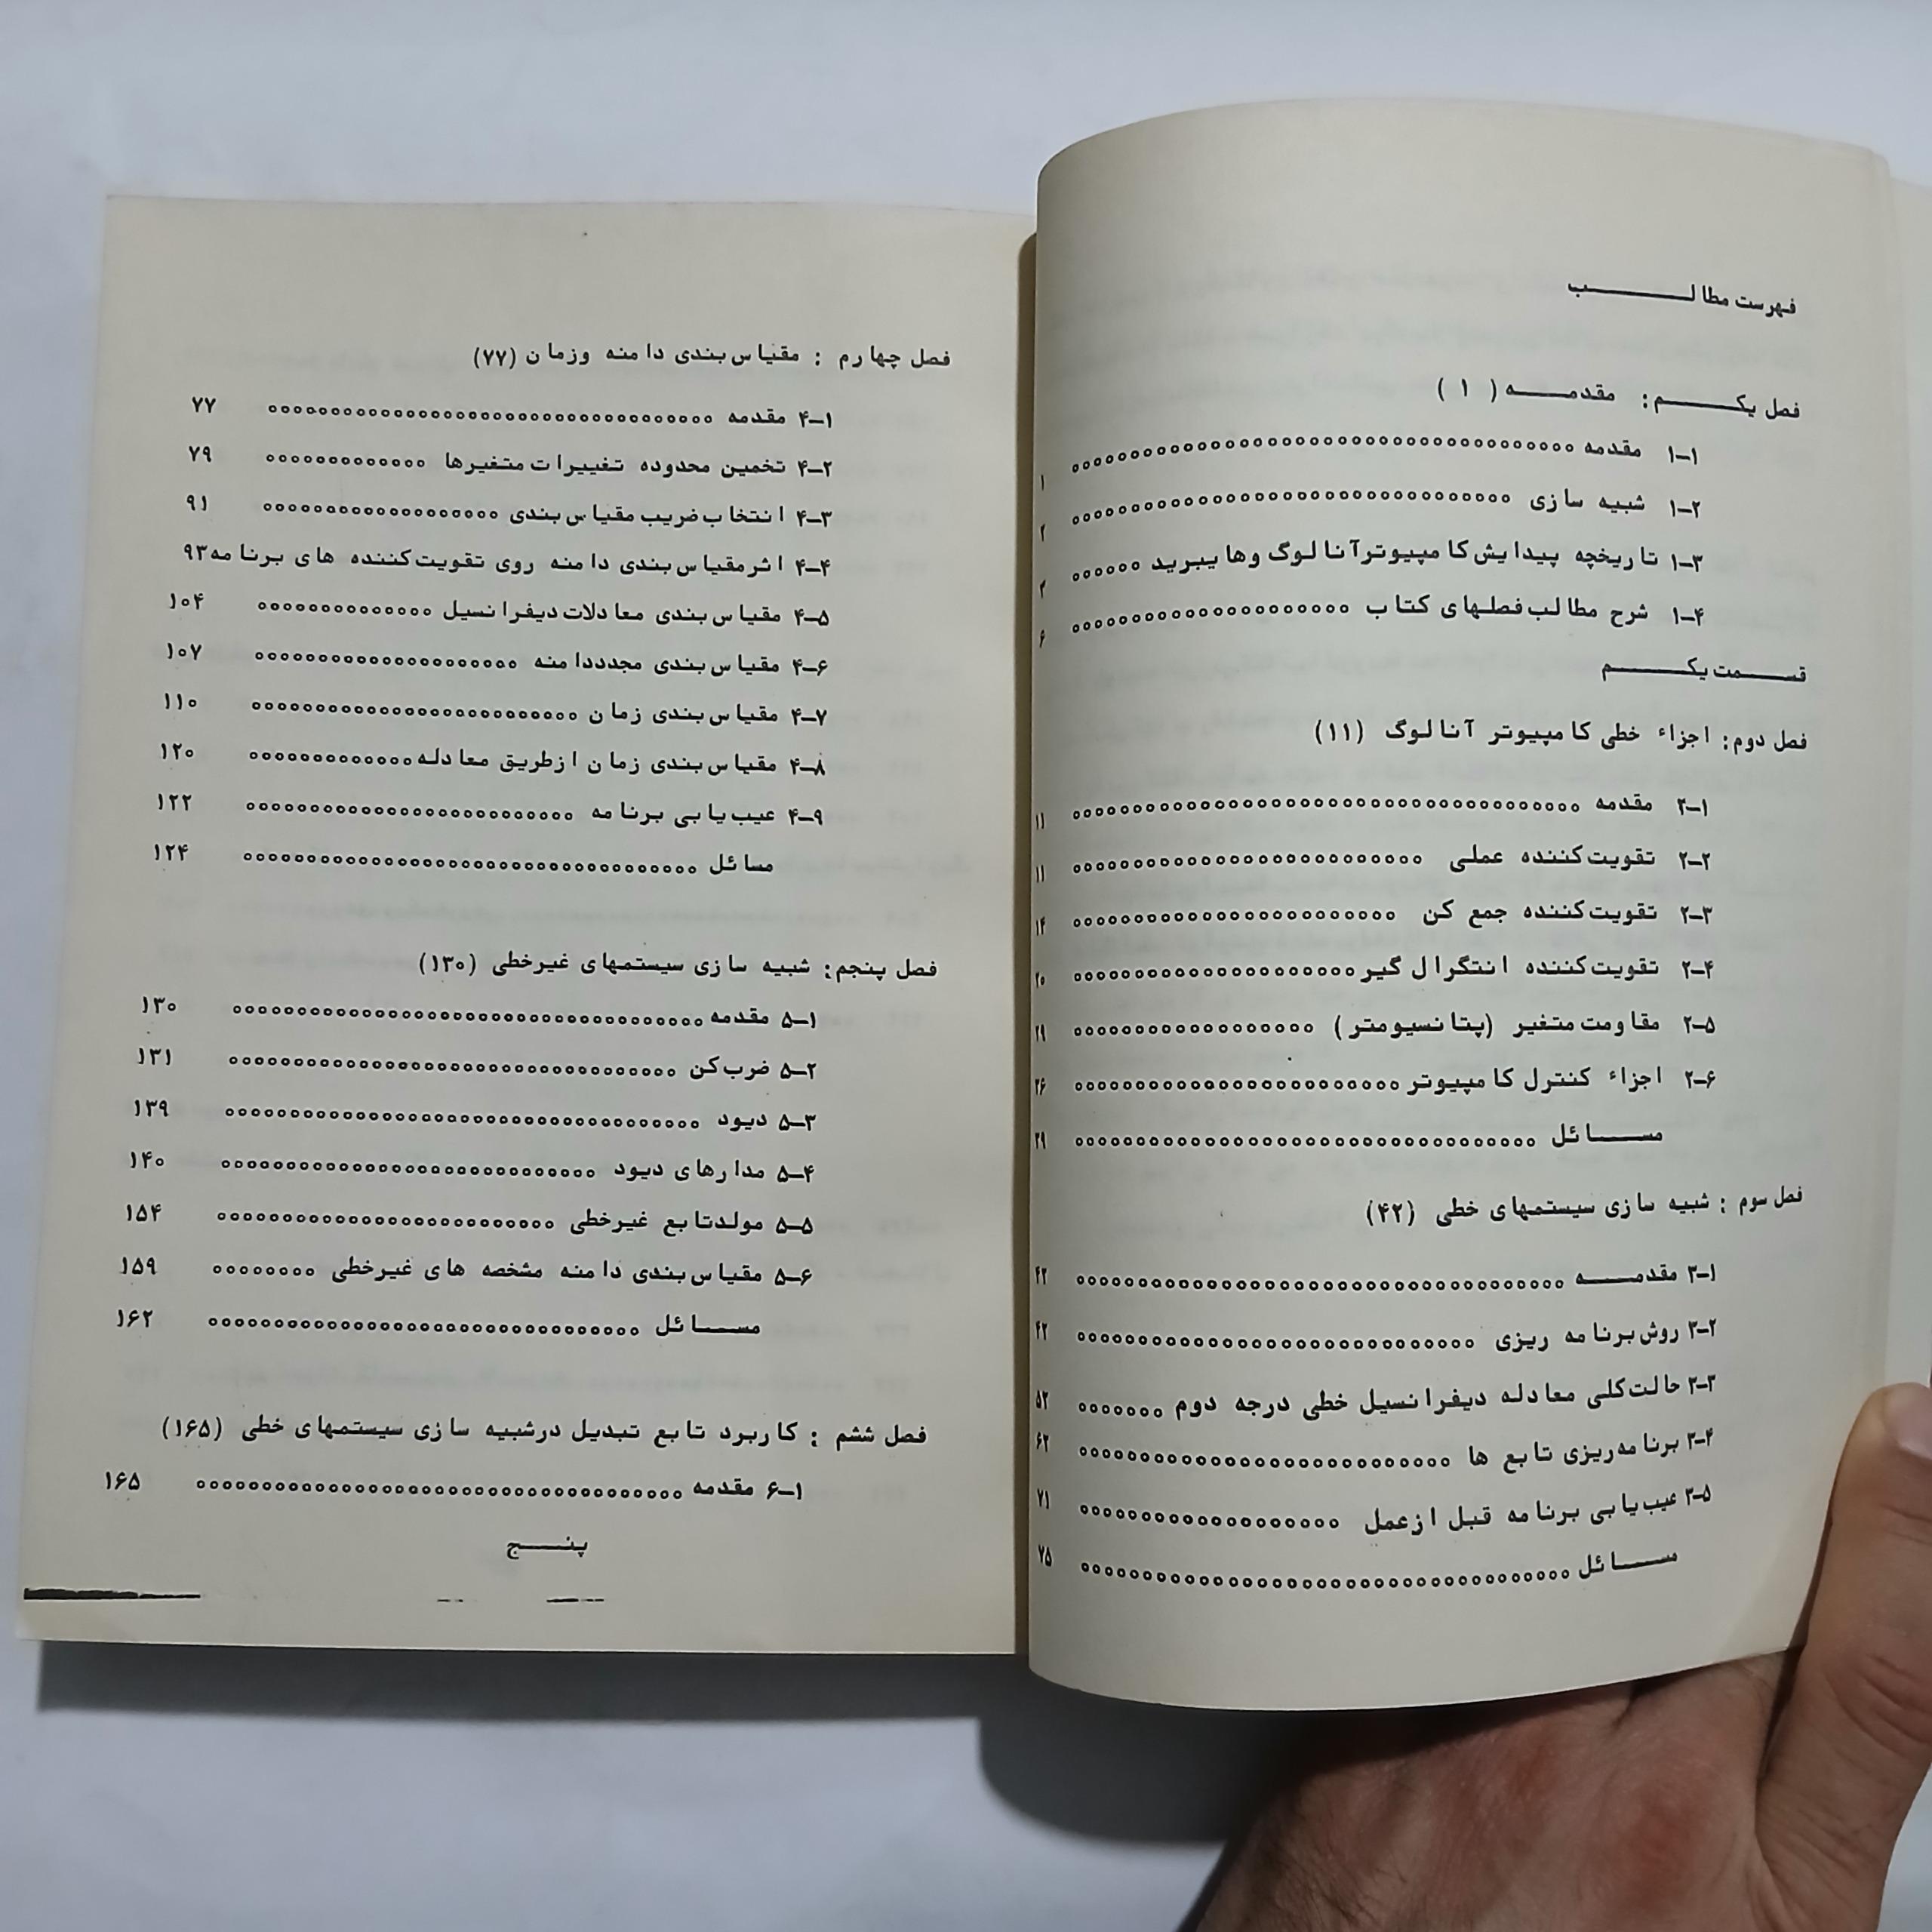 فهرست مطالب
فصل یکم: مقدمه ( ۱ )
۱-۱ مقدمه ۱
۱-۲ شبیه سازی ۲
۱-۳ تاریخچه پیدایش کامپیوتر آنالوگ وهایبرید
۱-۴ شرح مطالب فصلهای کتاب ۶
قسمت یکم
فصل دوم: اجزاء خطی کامپیوتر آنالوگ (۱۱)
۲-۱ مقدمه ۱۱
۲-۲ تقویت‌کننده عملی ۱۱
۲-۳ تقویت‌کننده جمع کن ۱۴
۲-۴ تقویت‌کننده انتگرال گیر ۲۰
۲-۵ مقاومت متغیر (پتانسیومتر)
۲-۶ اجزاء کنترل کامپیوتر
مسائل
فصل سوم : شبیه سازی سیستمهای خطی (۴۲)
۳-۱ مقدمه ۴۲
۳-۲ روش برنامه ریزی ۴۲
۳-۳ حالت‌کلی معادله دیفرانسیل خطی درجه دوم ۵۲
۳-۴ برنامه‌ریزی تابع ها ۶۲
۳-۵ عیب‌یابی برنامه قبل ازعمل ۷۱
مسائل ۷۵
فصل چهارم : مقیاس‌بندی دامنه وزمان (۷۷)
۴-۱ مقدمه ۷۷
۴-۲ تخمین محدوده تغییرات متغیرها ۷۹
۴-۳ انتخاب ضریب مقیاس بندی ۹۱
۴-۴ اثرمقیاس‌بندی دامنه روی تقویت‌کننده های برنامه ۹۳
۴-۵ مقیاس‌بندی معادلات دیفرانسیل ۱۰۴
۴-۶ مقیاس‌بندی مجدددامنه ۱۰۷
۴-۷ مقیاس‌بندی زمان ۱۱۰
۴-۸ مقیاس‌بندی زمان ازطریق معادله ۱۲۰
۴-۹ عیب‌یابی برنامه ۱۲۲
مسائل ۱۲۴
فصل پنجم: شبیه سازی سیستمهای غیرخطی (۱۳۰)
۵-۱ مقدمه ۱۳۰
۵-۲ ضرب‌کن ۱۳۱
۵-۳ دیود ۱۳۹
۵-۴ مدارهای دیود ۱۴۰
۵-۵ مولدتابع غیرخطی ۱۵۴
۵-۶ مقیاس‌بندی دامنه مشخصه های غیرخطی ۱۵۹
مسائل ۱۶۲
فصل ششم : کاربرد تابع تبدیل درشبیه سازی سیستمهای خطی (۱۶۵)
۶-۱ مقدمه ۱۶۵
پنج